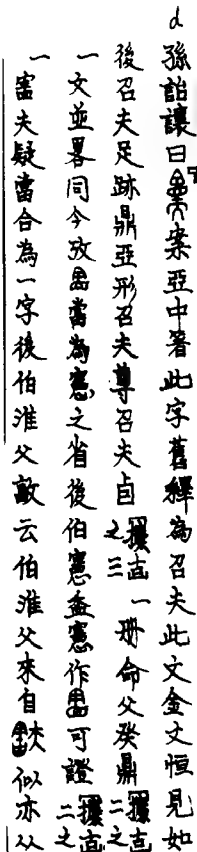 d
孫詒讓曰案亞中著此字舊釋為召夫此文金文恒見如
後召夫足跡鼎亞形召夫尊召夫卣攈古一之三冊命父癸鼎攈古二之
一文並畧同今攷當為憲之省後伯憲盉憲作可證攈古二之
一害夫疑當合為一字後伯淮父敵云伯淮父來自似亦从